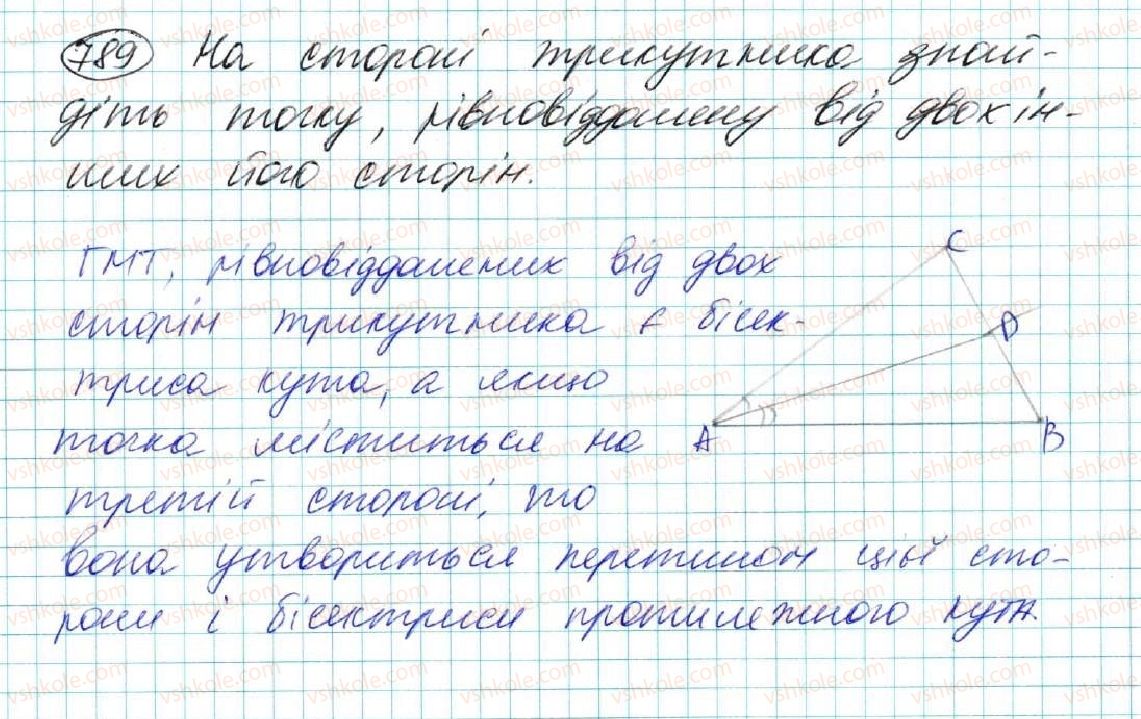 789 На стороні трикутника знай-
діть точку, рівновіддалену від двох ін-
ших його сторін.
ГМТ, рівновіддалених від двох
сторін трикутника є бісек-
триса кута, а якщо
точка міститься на
третій стороні, то
вона утвориться перетином цієї сто-
рони і бісектриси протилежного кута.
C
D
A
B